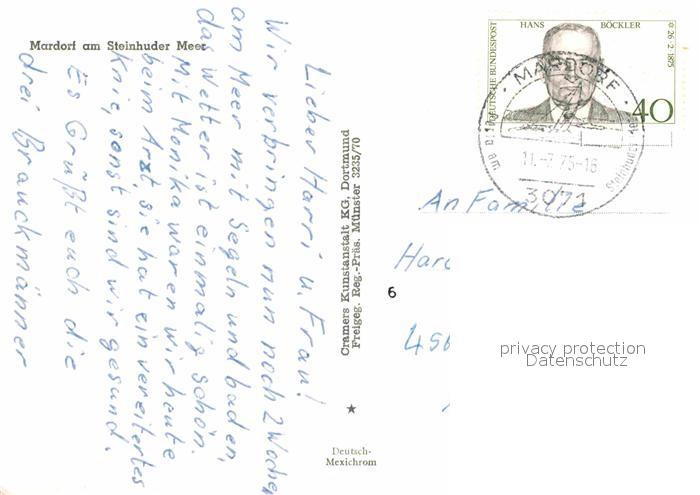 Mardorf am Steinhuder Meer
Lieber Harri u. Frau!
Wir verbringen nun noch 2 Wochen
am Meer mit Segeln und baden,
das Wetter ist einmalig schön.
Mit Monika waren wir heute
beim Arzt, sie hat ein vereitertes
Knie, sonst sind wir gesund.
Es Grüßt euch die
drei Brauckmänner
Cramers Kunstanstalt KG. Dortmund
Freigeg. Reg.-Präs. Münster 3235/70
★
Deutsch-
Mexichrom
DEUTSCHE BUNDESPOST
HANS BÖCKLER
* 26·2·1875
40
MARDORF
11.-7.75-16
3071
am
Steinhuder
An Familie
Har
6
456
privacy protection
Datenschutz